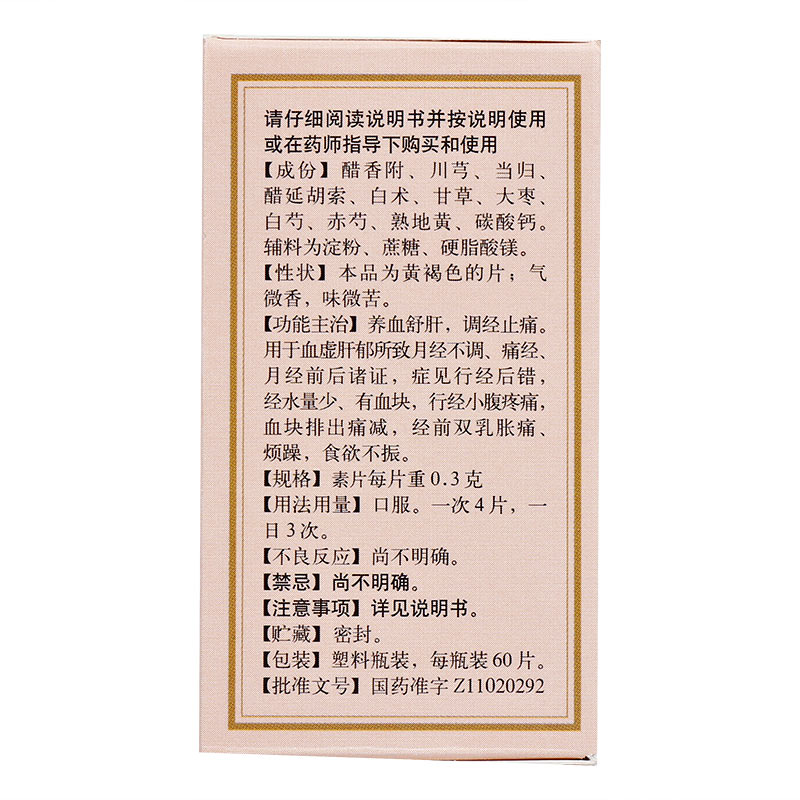 请仔细阅读说明书并按说明使用
或在药师指导下购买和使用
【成份】醋香附、川芎、当归、
醋延胡索、白术、甘草、大枣、
白芍、赤芍、熟地黄、碳酸钙。
辅料为淀粉、蔗糖、硬脂酸镁。
【性状】本品为黄褐色的片；气
微香，味微苦。
【功能主治】养血舒肝，调经止痛。
用于血虚肝郁所致月经不调、痛经、
月经前后诸证，症见行经后错，
经水量少、有血块，行经小腹疼痛，
血块排出痛减，经前双乳胀痛、
烦躁，食欲不振。
【规格】素片每片重0.3克
【用法用量】口服。一次4片，一
日3次。
【不良反应】尚不明确。
【禁忌】尚不明确。
【注意事项】详见说明书。
【贮藏】密封。
【包装】塑料瓶装，每瓶装60片。
【批准文号】国药准字Z11020292